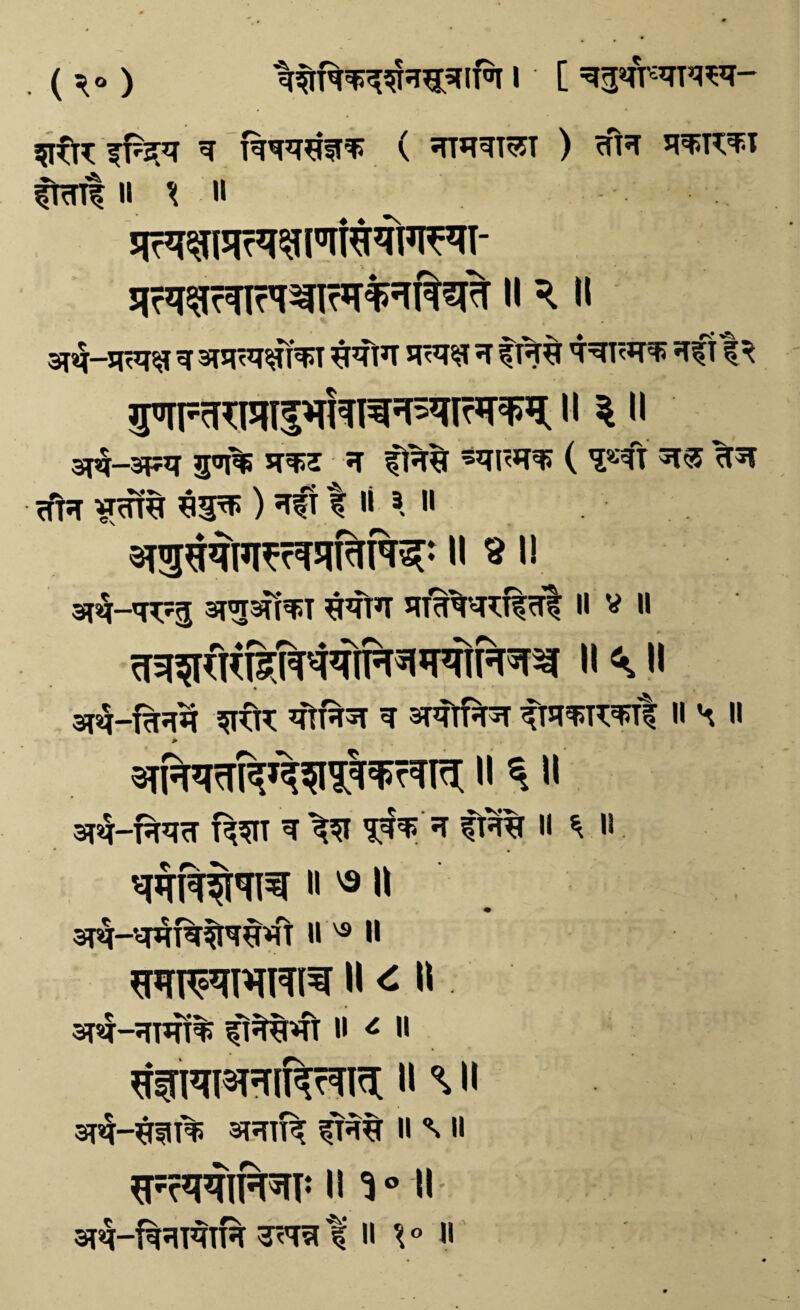 ( २० ) वैशेषिकदर्शनसूत्राणि । [ चतुर्थाध्यायस्य-
शरीर इन्द्रिय व विषयसंज्ञक ( नामवाला ) तीन प्रकारका
होताहै ॥ १ ॥
प्रत्यक्षाप्रत्यक्षाणांसंयोगस्या-
प्रत्यक्षत्वात्पञ्चात्मकंनविद्यते ॥ २ ॥
अर्थ-प्रत्यक्ष व अप्रत्यक्षोंका संयोग प्रत्यक्ष न होनेसे पंचात्मक नहीं है२
गुणान्तराप्रादुर्भावाच्चनत्र्यात्मकम् ॥ ३ ॥
अर्थ-अन्य गुणके प्रकट न होनेसे त्र्यात्मक ( पृथ्वी जल तेज
तीन भूतोंसे संयुक्त ) नहीं है ॥ ३ ॥
अणुसंयोगस्त्वप्रतिषिद्धः ॥ ४ ॥
अर्थ-परन्तु अणुओंका संयोग प्रतिषेधरहितहै ॥ ४ ॥
तत्रशरीरंद्विविधंयोनिजमयोनिजञ्च ॥ ५ ॥
अर्थ-तिनमें शरीर योनिज व अयोनिज दोप्रकारकाहै ॥ ५ ॥
अनियतदिग्देशपूर्वकत्वात् ॥ ६ ॥
अर्थ-नियत दिशा व देश पूर्वक न होनेसे ॥ ६ ॥
धर्मविशेषाच्च ॥ ७ ॥
अर्थ-धर्मविशेषसेभी ॥ ७ ॥
समाख्याभावाच्च ॥ ८ ॥
अर्थ-नामोंके होनेसेभी ॥ ८ ॥
संज्ञायाअनादित्वात् ॥ ९ ॥
अर्थ-संज्ञाके अनादि होनेसे ॥ ९ ॥
सन्त्ययोनिजाः ॥ १० ॥
अर्थ-विनायोनि उत्पन्न हैं ॥ १० ॥